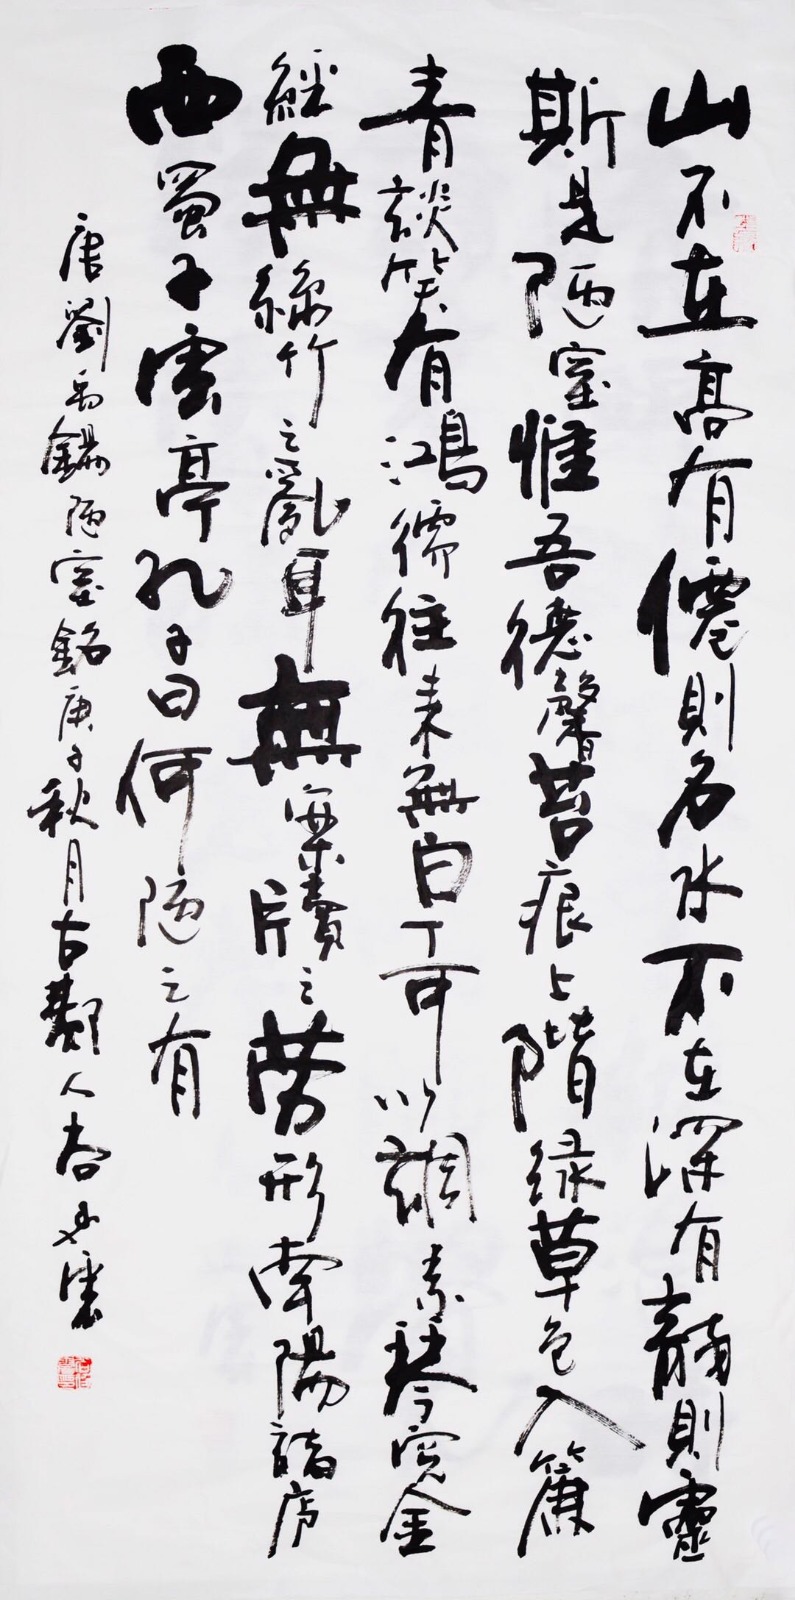 山不在高有僊則名水不在深有龍則靈
斯是陋室惟吾德馨苔痕上階绿草色入簾
青談笑有鴻儒往来無白丁可以調素琴閲金
經無絲竹之亂耳無案牘之勞形南陽諸廬
西蜀子雲亭孔子曰何陋之有
唐劉禹錫陋室銘庚子秋月古鄴人尚雲